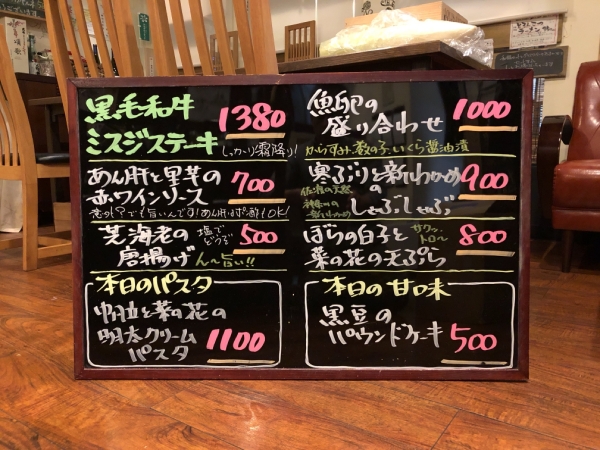 黒毛和牛
ミスジステーキ
1380
しっかり霜降り!
あん肝と里芋の
赤ワインソース
700
意外?でも旨いんです!あん肝ポン酢もOK!
芝海老の
唐揚げ
塩で
どうぞ
500
ん〜旨い!!
本日のパスタ
帆立と菜の花の
明太クリーム
パスタ
1100
魚卵の
盛り合わせ
1000
からすみ、数の子、いくら醤油漬
寒ぶりと新わかめ
の
しゃぶしゃぶ
900
佐渡の天然
神奈川の
新わかめ
ほらの白子と
菜の花の天ぷら
サクッ、
トロ〜
800
本日の甘味
黒豆の
パウンドケーキ
500